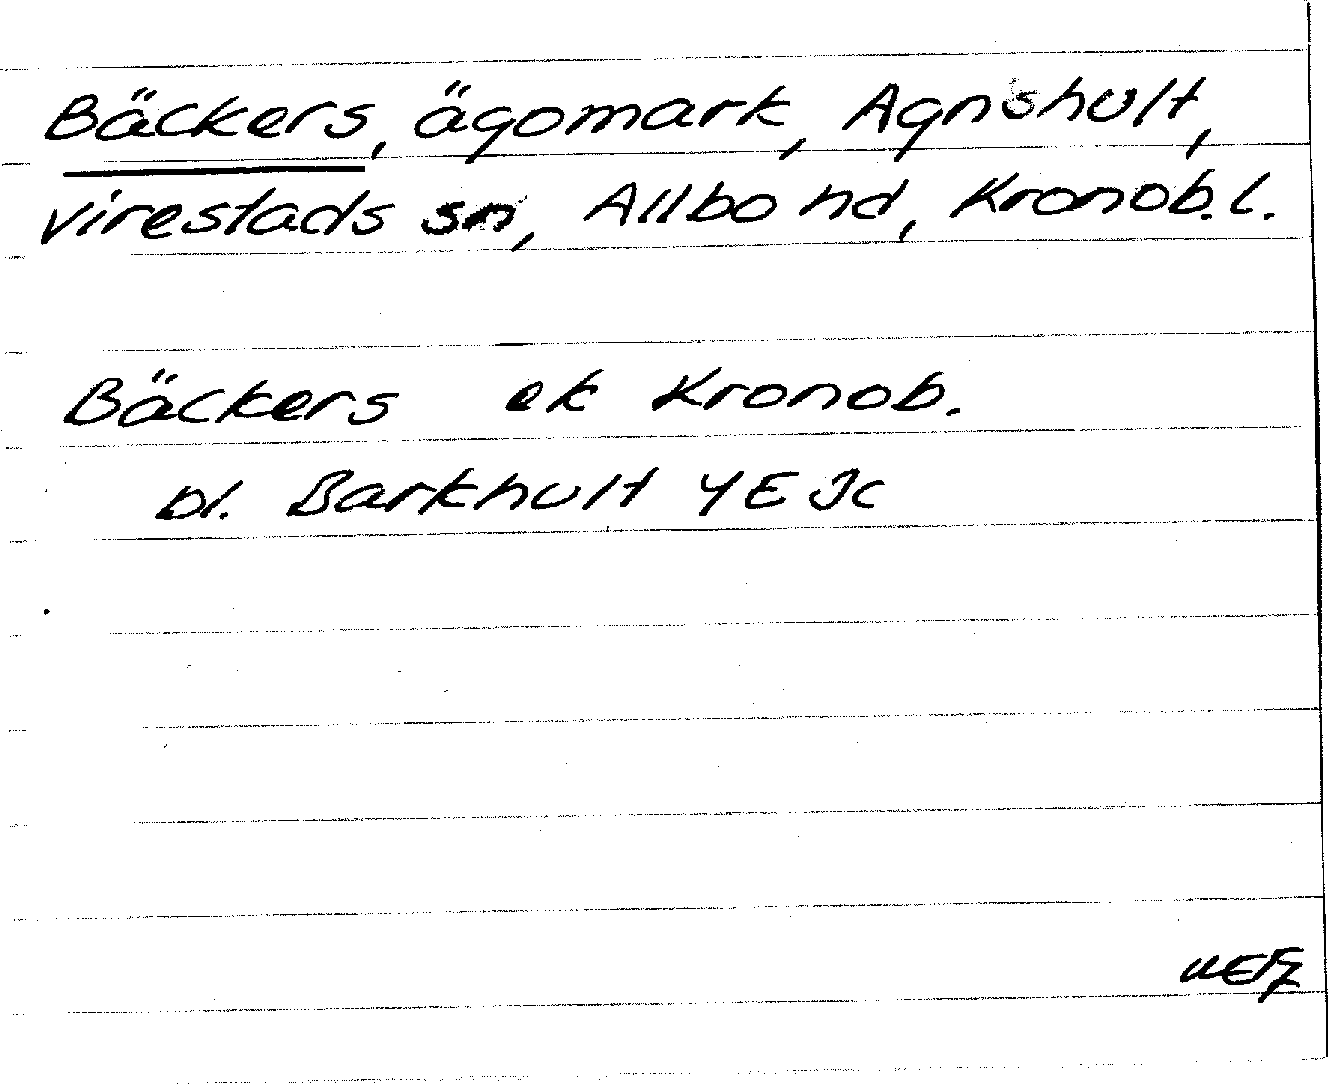 Bäckers, ägomark, Agnshult,
Virestads sn, Allbo hd, Kronob. l.
Bäckers ek Kronob.
bl. Barkhult 4E Jc